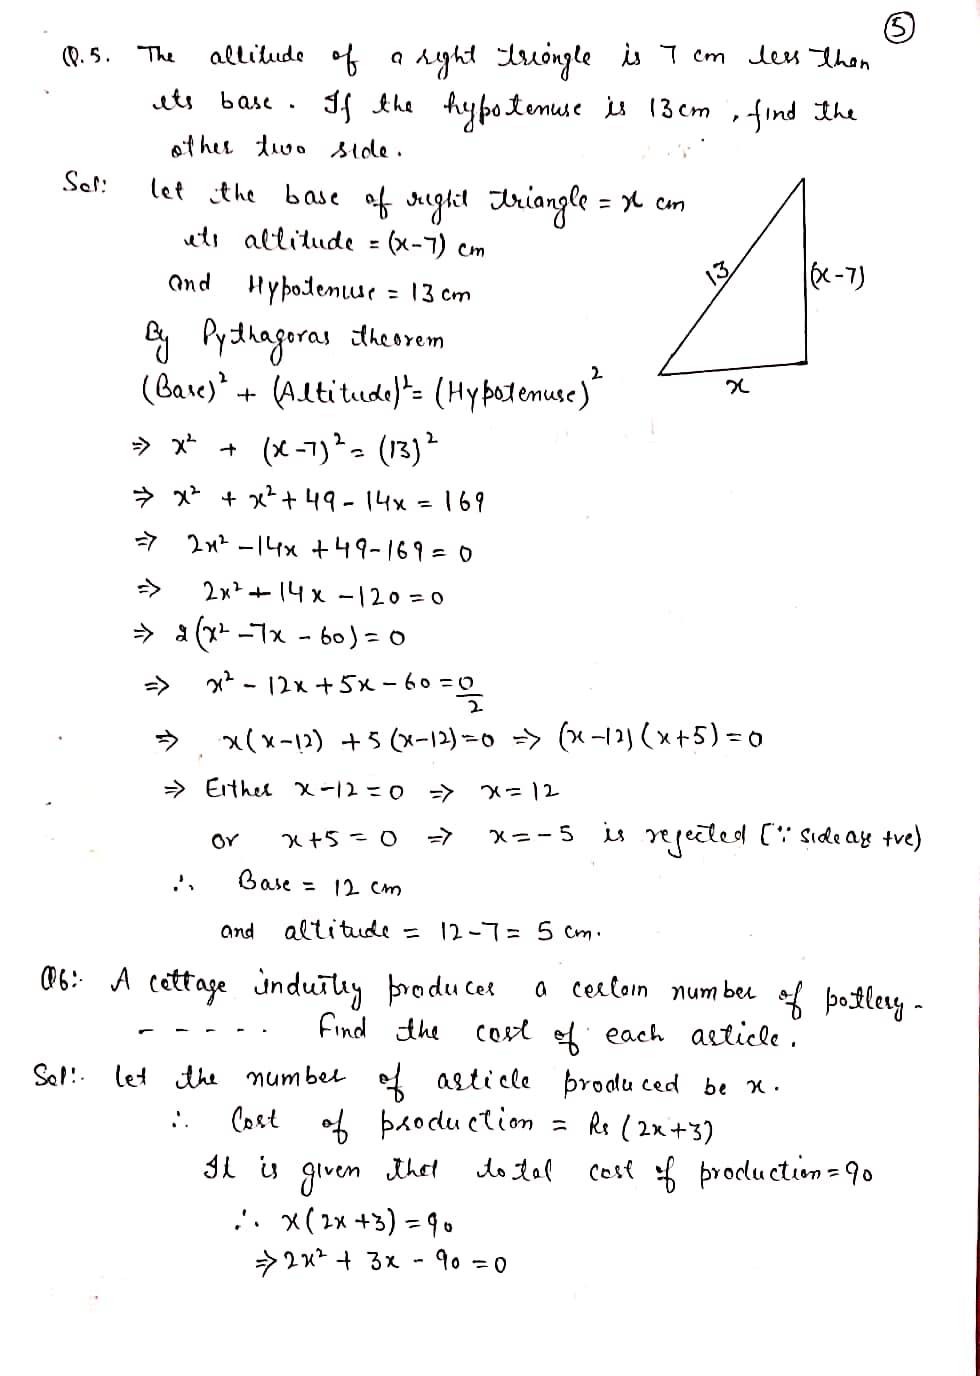 5
Q.5. The altitude of a right triangle is 7 cm less than
its base. If the hypotenuse is 13 cm, find the
other two side.
Sol: let the base of right triangle = x cm
its altitude = (x-7) cm
and Hypotenuse = 13 cm
13
(x-7)
x
By Pythagoras theorem
(Base)² + (Altitude)² = (Hypotenuse)²
⇒ x² + (x-7)² = (13)²
⇒ x² + x² + 49 - 14x = 169
⇒ 2x² - 14x + 49 - 169 = 0
⇒ 2x² + 14x - 120 = 0
⇒ 2(x² - 7x - 60) = 0
⇒ x² - 12x + 5x - 60 = 0/2
⇒ x(x-12) + 5(x-12) = 0 ⇒ (x-12)(x+5) = 0
⇒ Either x-12 = 0 ⇒ x = 12
or x+5 = 0 ⇒ x = -5 is rejected [∵ side are +ve)
∴ Base = 12 cm
and altitude = 12-7 = 5 cm.
Q6:- A cottage industry produces a certain number of pottery -
- - - - - . . Find the cost of each article.
Sol:- let the number of article produced be x.
∴ Cost of production = Rs (2x+3)
It is given that total cost of production = 90
∴ x(2x+3) = 90
⇒ 2x² + 3x - 90 = 0